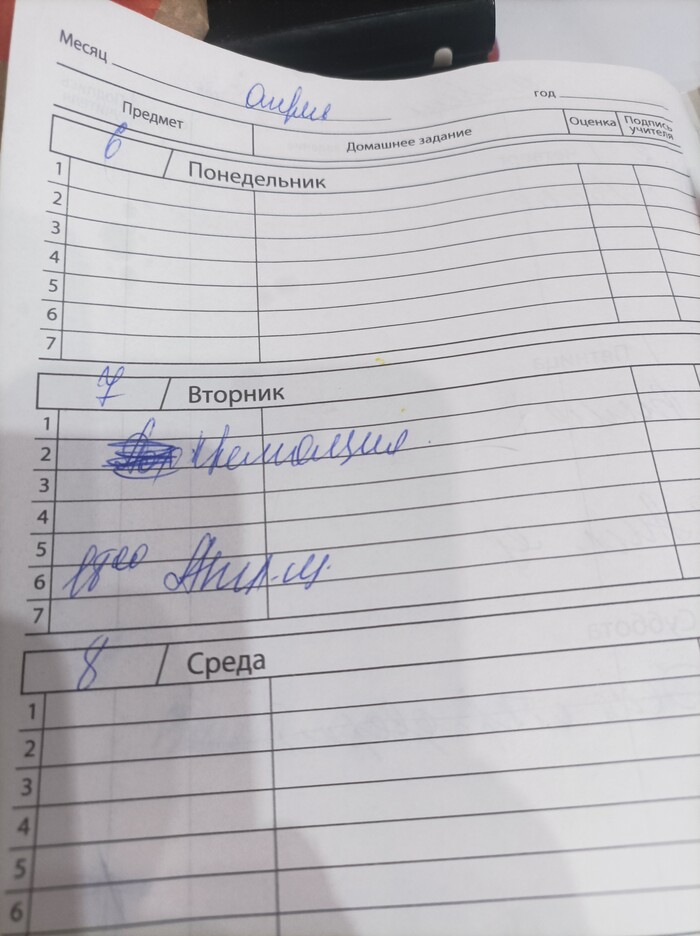 Месяц апрель год
Предмет Домашнее задание Оценка Подпись учителя
6 Понедельник
1
2
3
4
5
6
7
7 Вторник
1
2
3
4
5
6
7
8 Среда
1
2
3
4
5
6